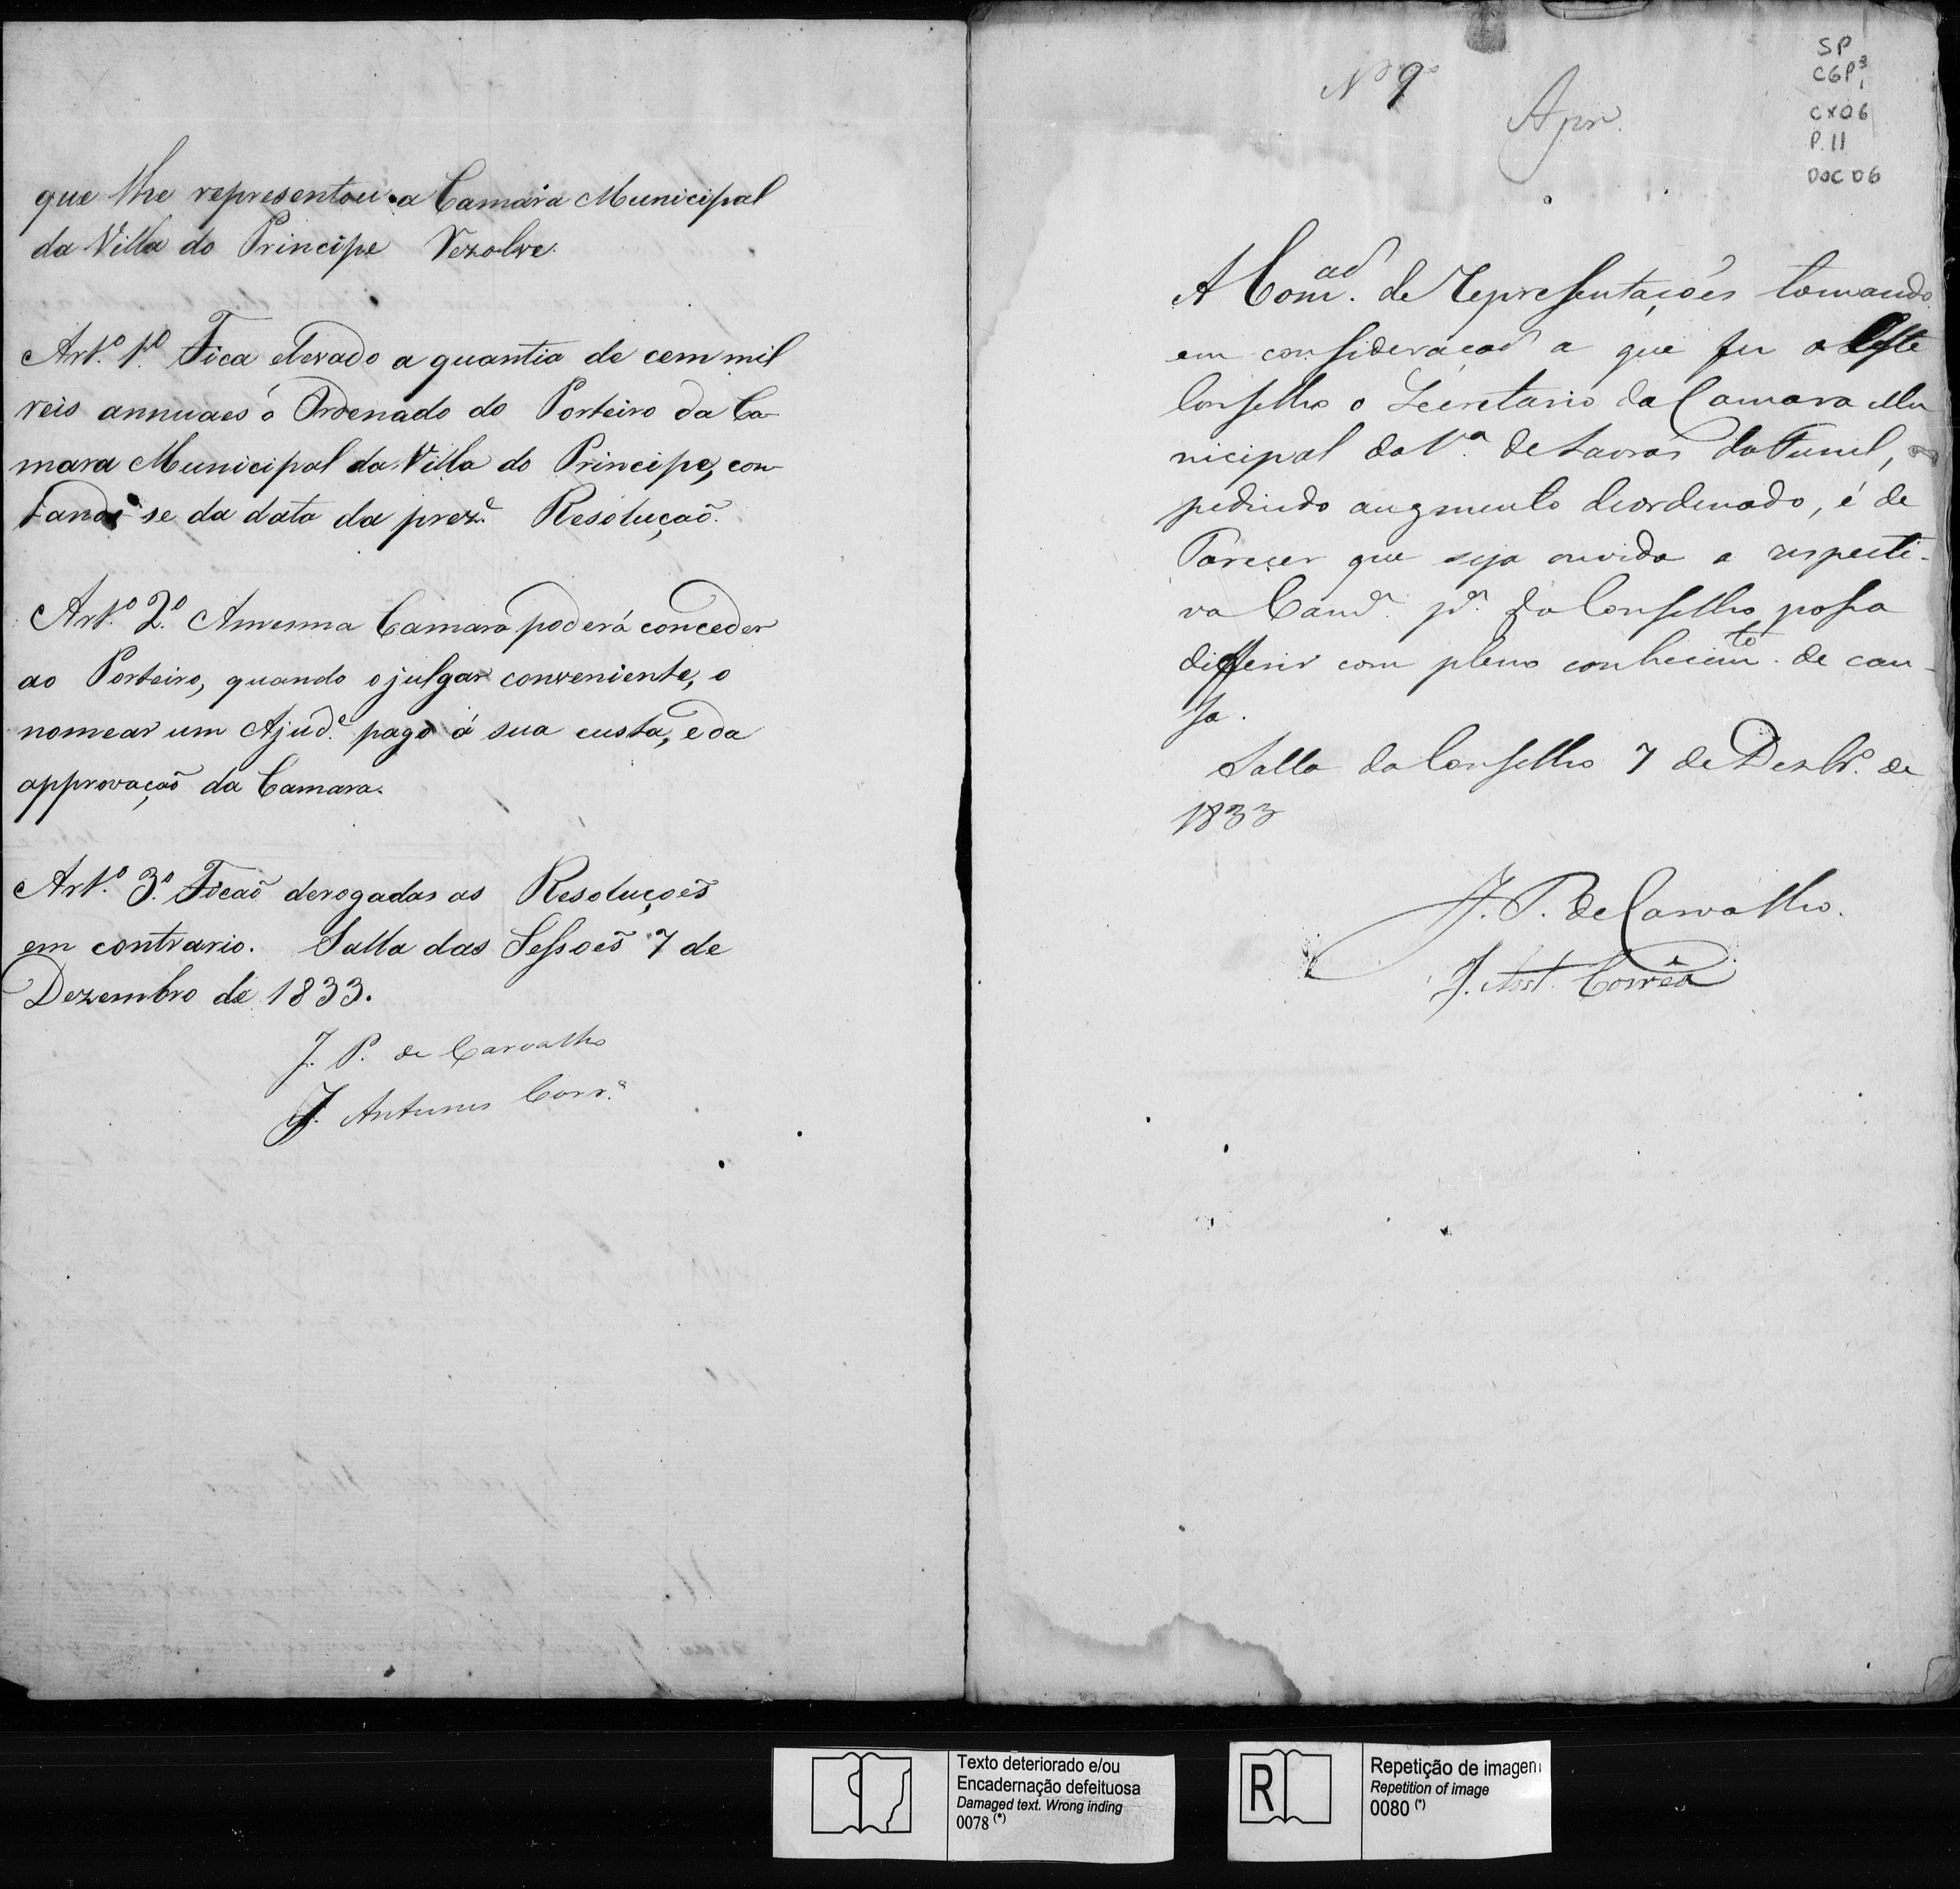 que lhe representou a Camara Municipal
da Villa do Principe Rezolve.
Art.º 1.º Fica elevado a quantia de cem mil
reis annuaes o Ordenado do Porteiro da Ca-
mara Municipal da Villa do Principe, con-
tando-se da data da prez.e Resoluçaõ.
Art.º 2.º A mesma Camara poderá conceder
ao Porteiro, quando o julgar conveniente, o
nomear um Ajud.e pago á sua custa, e da
approvaçaõ da Camara.
Art.º 3.º Ficaõ derogadas as Resoluçoẽs
em contrario. Salla das Sessoẽs 7 de
Dezembro de 1833.
J. P. de Carvalho
J. Antunes Corr.a
Nº 9º
Apr.
SP
CGP³1
CX06
P.11
DOC 06
A Com.ad de representaçoẽs tomando
em consideraçaõ a que fez a este
Conselho o Secretario da Camara Mu
nicipal da V.a de Lavras do Funil,
pedindo augmento de ordenado, é de
Parecer que seja ouvida a respecti-
va Cam.a p.a q o Conselho possa
differir com pleno conhecim.to de cau-
sa.
Salla do Conselho 7 de Dezbr.o de
1833
J. P. de Carvalho.
J. Ant. Corrêa
Texto deteriorado e/ou
Encadernação defeituosa
Damaged text. Wrong inding
0078 (*)
R
Repetição de imagem
Repetition of image
0080 (*)